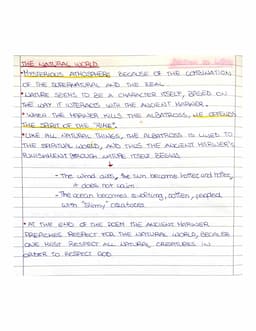 THE NATURAL WORLD
• MYSTERIOUS ATMOSPHERE BECAUSE OF THE COMBINATION
OF THE SUPERNATURAL AND THE REAL.
• NATURE SEEMS TO BE A CHARACTER ITSELF, BASED ON
THE WAY IT INTERACTS WITH THE ANCIENT MARINER.
• WHEN THE MARINER KILLS THE ALBATROSS, HE OFFENDS
THE SPIRIT OF THE "RIME".
• LIKE ALL NATURAL THINGS, THE ALBATROSS IS LINKED TO
THE SPIRITUAL WORLD, AND THUS THE ANCIENT MARINER'S
PUNISHMENT THROUGH NATURE ITSELF BEGINS
- The wind dies, the sun becomes hotter and hotter,
it does not rain
- The ocean becomes sweltering, rotten, peopled
with "slimy" creatures
• AT THE END OF THE POEM THE ANCIENT MARINER
PREACHES RESPECT FOR THE NATURAL WORLD, BECAUSE
ONE MUST RESPECT ALL NATURAL CREATURES IN
ORDER TO RESPECT GOD